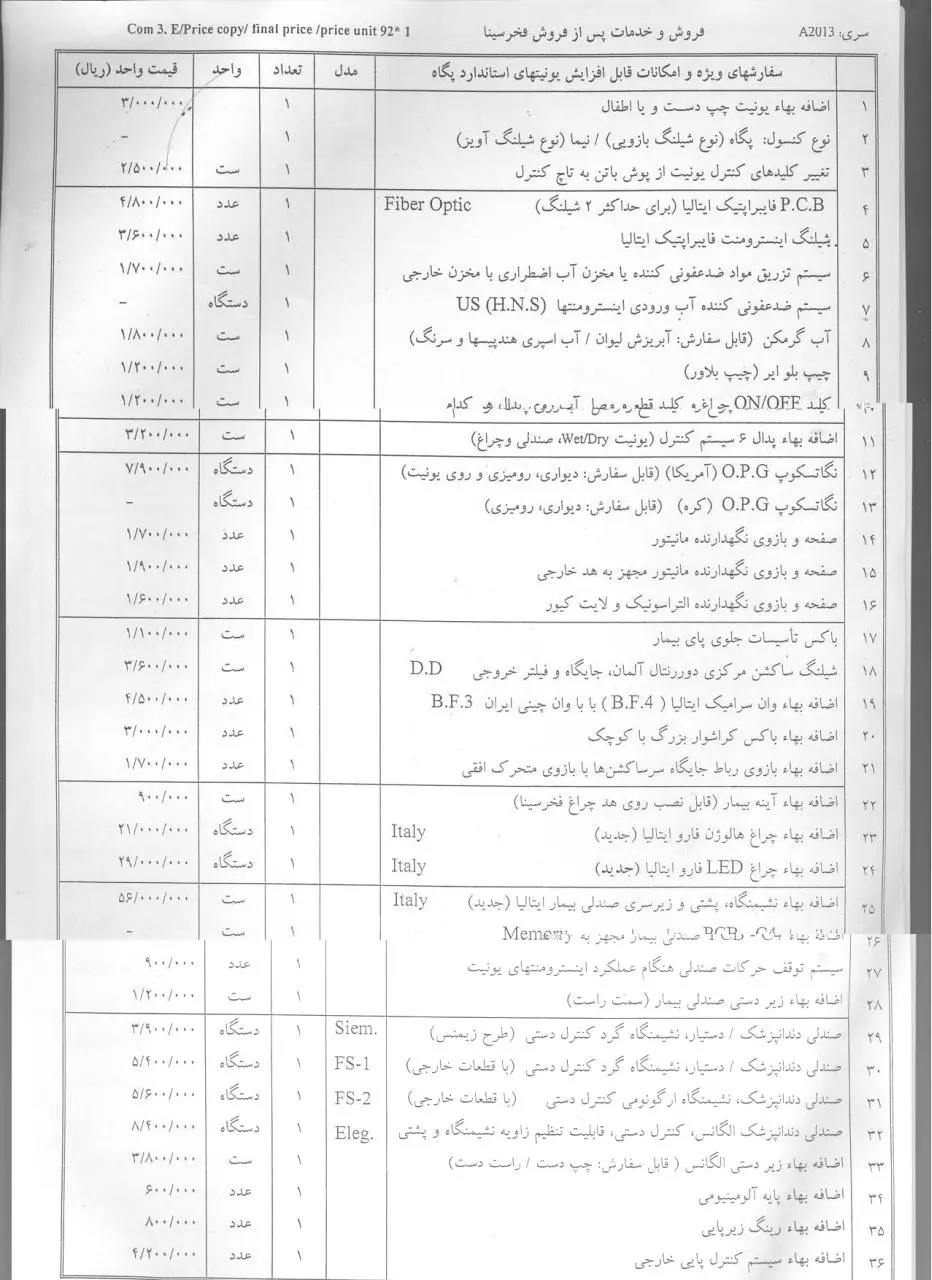 سری: A2013 فروش و خدمات پس از فروش فخرسینا Com 3. E/Price copy/ final price /price unit 92* 1
سفارشهای ویژه و امکانات قابل افزایش یونیتهای استاندارد پگاه مدل تعداد واحد قیمت واحد (ریال)
۱ اضافه بهاء یونیت چپ دست و یا اطفال ۱ ۳/۰۰۰/۰۰۰
۲ نوع کنسول: پگاه (نوع شیلنگ بازویی) / نیما (نوع شیلنگ آویز) ۱ -
۳ تغییر کلیدهای کنترل یونیت از پوش باتن به تاچ کنترل ۱ ست ۲/۵۰۰/۰۰۰
۴ P.C.B فایبراپتیک ایتالیا (برای حداکثر ۲ شیلنگ) Fiber Optic ۱ عدد ۴/۸۰۰/۰۰۰
۵ شیلنگ اینسترومنت فایبراپتیک ایتالیا ۱ عدد ۳/۶۰۰/۰۰۰
۶ سیستم تزریق مواد ضدعفونی کننده یا مخزن آب اضطراری با مخزن خارجی ۱ ست ۱/۷۰۰/۰۰۰
۷ سیستم ضدعفونی کننده آب ورودی اینسترومنتها US (H.N.S) ۱ دستگاه -
۸ آب گرمکن (قابل سفارش: آبریزش لیوان / آب اسپری هندپیسها و سرنگ) ۱ ست ۱/۸۰۰/۰۰۰
۹ چیپ بلو ایر (چیپ بلاور) ۱ ست ۱/۲۰۰/۰۰۰
کلید ON/OFF ۱ ست ۱/۲۰۰/۰۰۰
۱۱ اضافه بهاء پدال ۶ سیستم کنترل (یونیت Wet/Dry، صندلی وچراغ) ۱ ست ۳/۲۰۰/۰۰۰
۱۲ نگاتسکوپ O.P.G (آمریکا) (قابل سفارش: دیواری، رومیزی و روی یونیت) ۱ دستگاه ۷/۹۰۰/۰۰۰
۱۳ نگاتسکوپ O.P.G (کره) (قابل سفارش: دیواری، رومیزی) ۱ دستگاه -
۱۴ صفحه و بازوی نگهدارنده مانیتور ۱ عدد ۱/۷۰۰/۰۰۰
۱۵ صفحه و بازوی نگهدارنده مانیتور مجهز به هد خارجی ۱ عدد ۱/۹۰۰/۰۰۰
۱۶ صفحه و بازوی نگهدارنده التراسونیک و لایت کیور ۱ عدد ۱/۶۰۰/۰۰۰
۱۷ باکس تأسیسات جلوی پای بیمار ۱ ست ۱/۱۰۰/۰۰۰
۱۸ شیلنگ ساکشن مرکزی دوررنتال آلمان، جایگاه و فیلتر خروجی D.D ۱ ست ۳/۶۰۰/۰۰۰
۱۹ اضافه بهاء وان سرامیک ایتالیا ( B.F.4 ) با با وان چینی ایران B.F.3 ۱ عدد ۴/۵۰۰/۰۰۰
۲۰ اضافه بهاء باکس کراشوار بزرگ با کوچک ۱ عدد ۳/۰۰۰/۰۰۰
۲۱ اضافه بهاء بازوی رباط جایگاه سرساکشن‌ها با بازوی متحرک افقی ۱ عدد ۱/۷۰۰/۰۰۰
۲۲ اضافه بهاء آینه بیمار (قابل نصب روی هد چراغ فخرسینا) ۱ ست ۹۰۰/۰۰۰
۲۳ اضافه بهاء چراغ هالوژن فارو ایتالیا (جدید) Italy ۱ دستگاه ۲۱/۰۰۰/۰۰۰
۲۴ اضافه بهاء چراغ LED فارو ایتالیا (جدید) Italy ۱ دستگاه ۲۹/۰۰۰/۰۰۰
۲۵ اضافه بهاء نشیمنگاه، پشتی و زیرسری صندلی بیمار ایتالیا (جدید) Italy ۱ ست ۵۶/۰۰۰/۰۰۰
۲۶ اضافه بهاء صندلی بیمار مجهز به Memory ۱ ست -
۲۷ سیستم توقف حرکات صندلی هنگام عملکرد اینسترومنتهای یونیت ۱ عدد ۹۰۰/۰۰۰
۲۸ اضافه بهاء زیر دستی صندلی بیمار (سمت راست) ۱ ست ۱/۲۰۰/۰۰۰
۲۹ صندلی دندانپزشک / دستیار، نشیمنگاه گرد کنترل دستی (طرح زیمنس) Siem. ۱ دستگاه ۳/۹۰۰/۰۰۰
۳۰ صندلی دندانپزشک / دستیار، نشیمنگاه گرد کنترل دستی (با قطعات خارجی) FS-1 ۱ دستگاه ۵/۴۰۰/۰۰۰
۳۱ صندلی دندانپزشک، نشیمنگاه ارگونومی کنترل دستی (با قطعات خارجی) FS-2 ۱ دستگاه ۵/۶۰۰/۰۰۰
۳۲ صندلی دندانپزشک الگانس، کنترل دستی، قابلیت تنظیم زاویه نشیمنگاه و پشتی Eleg. ۱ دستگاه ۸/۴۰۰/۰۰۰
۳۳ اضافه بهاء زیر دستی الگانس ( قابل سفارش: چپ دست / راست دست) ۱ ست ۳/۸۰۰/۰۰۰
۳۴ اضافه بهاء پایه آلومینیومی ۱ عدد ۶۰۰/۰۰۰
۳۵ اضافه بهاء رینگ زیرپایی ۱ عدد ۸۰۰/۰۰۰
۳۶ اضافه بهاء سیستم کنترل پایی خارجی ۱ عدد ۴/۲۰۰/۰۰۰